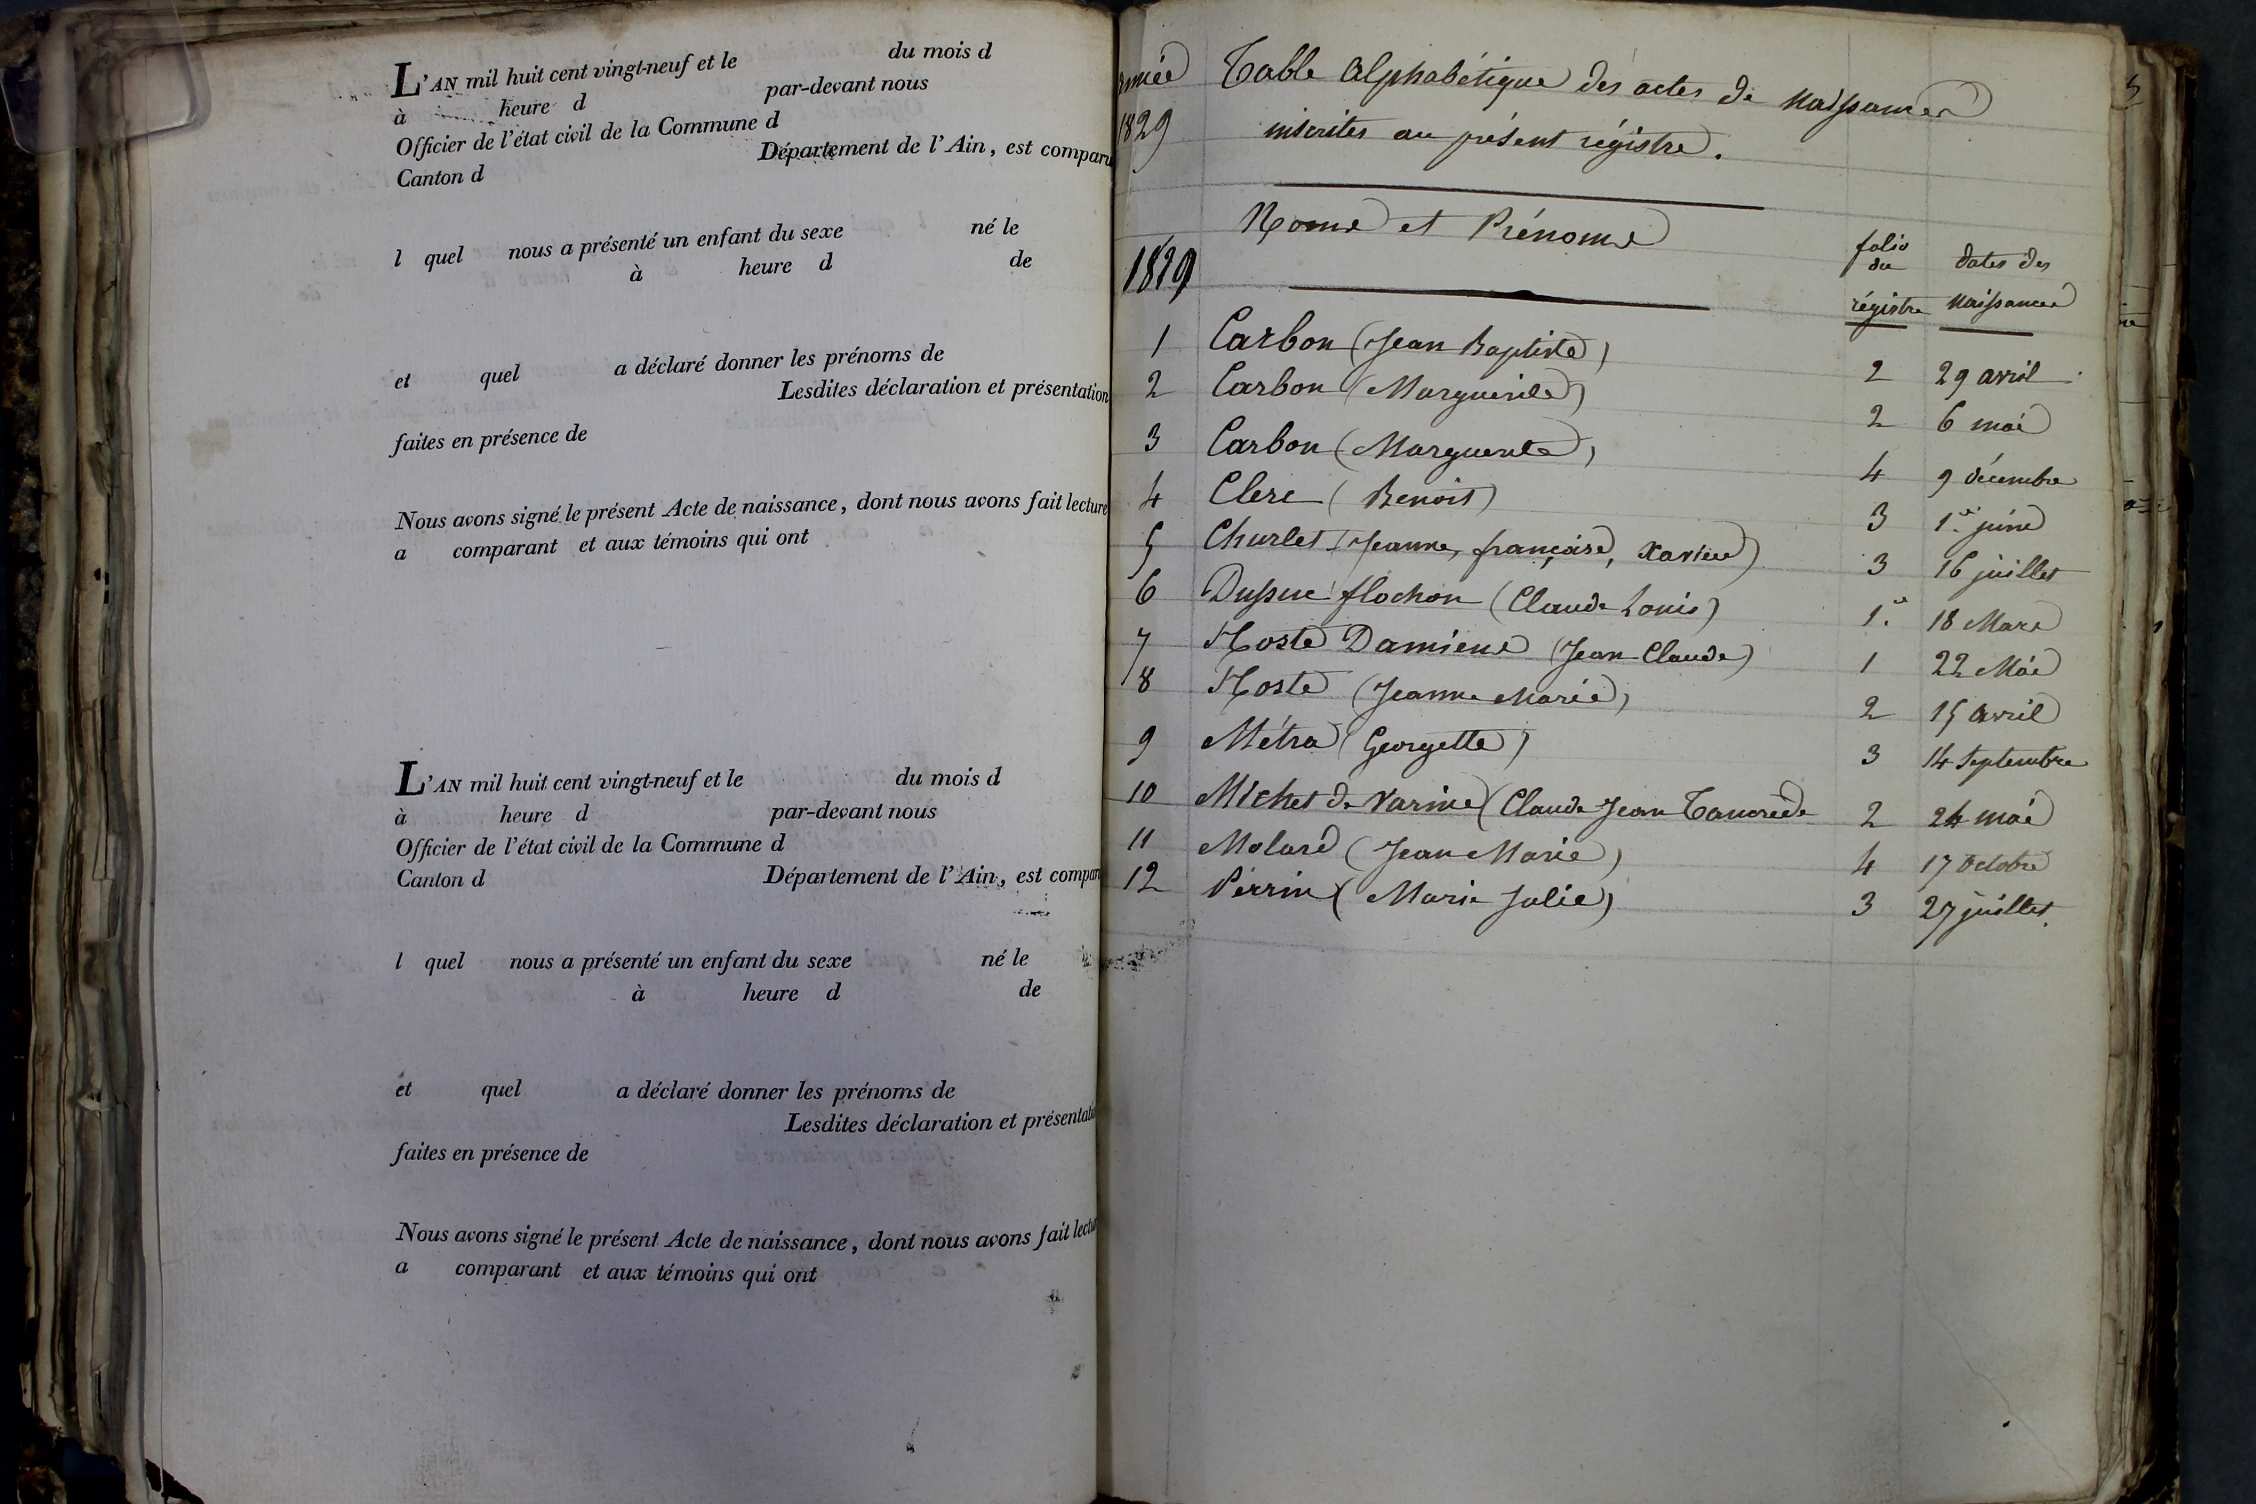 L'AN mil huit cent vingt-neuf et le du mois d
à heure d par-devant nous
Officier de l'état civil de la Commune d
Canton d Département de l'Ain, est comparu
l quel nous a présenté un enfant du sexe né le
à heure d de
et quel a déclaré donner les prénoms de
Lesdites déclaration et présentation
faites en présence de
Nous avons signé le présent Acte de naissance, dont nous avons fait lecture
a comparant et aux témoins qui ont
L'AN mil huit cent vingt-neuf et le du mois d
à heure d par-devant nous
Officier de l'état civil de la Commune d
Canton d Département de l'Ain, est compar
l quel nous a présenté un enfant du sexe né le
à heure d de
et quel a déclaré donner les prénoms de
Lesdites déclaration et présentati
faites en présence de
Nous avons signé le présent Acte de naissance, dont nous avons fait lectu
a comparant et aux témoins qui ont
année Table Alphabétique des actes de Naissances
1829 inscrites au présent régistre.
Noms et Prénoms folio du régistre dates des Naissances
1829
1 Carbon (Jean Baptiste) 2 29 avril
2 Carbon (Marguerite) 2 6 mai
3 Carbon (Marguerite) 4 9 décembre
4 Clerc (Benoit) 3 1er juin
5 Churlet (Jeanne, françoise, Xavier) 3 16 juillet
6 Dussuc flochon (Claude Louis) 1. 18 Mars
7 Hoste Damiens (Jean Claude) 1 22 Mai
8 Hoste (Jeanne Marie) 2 15 avril
9 Métra (Georgette) 3 14 Septembre
10 Michet de Varine (Claude Jean Tancrède 2 24 mai
11 Molard (Jean Marie) 4 17 Octobre
12 Perrin (Marie Julie) 3 27 juillet.